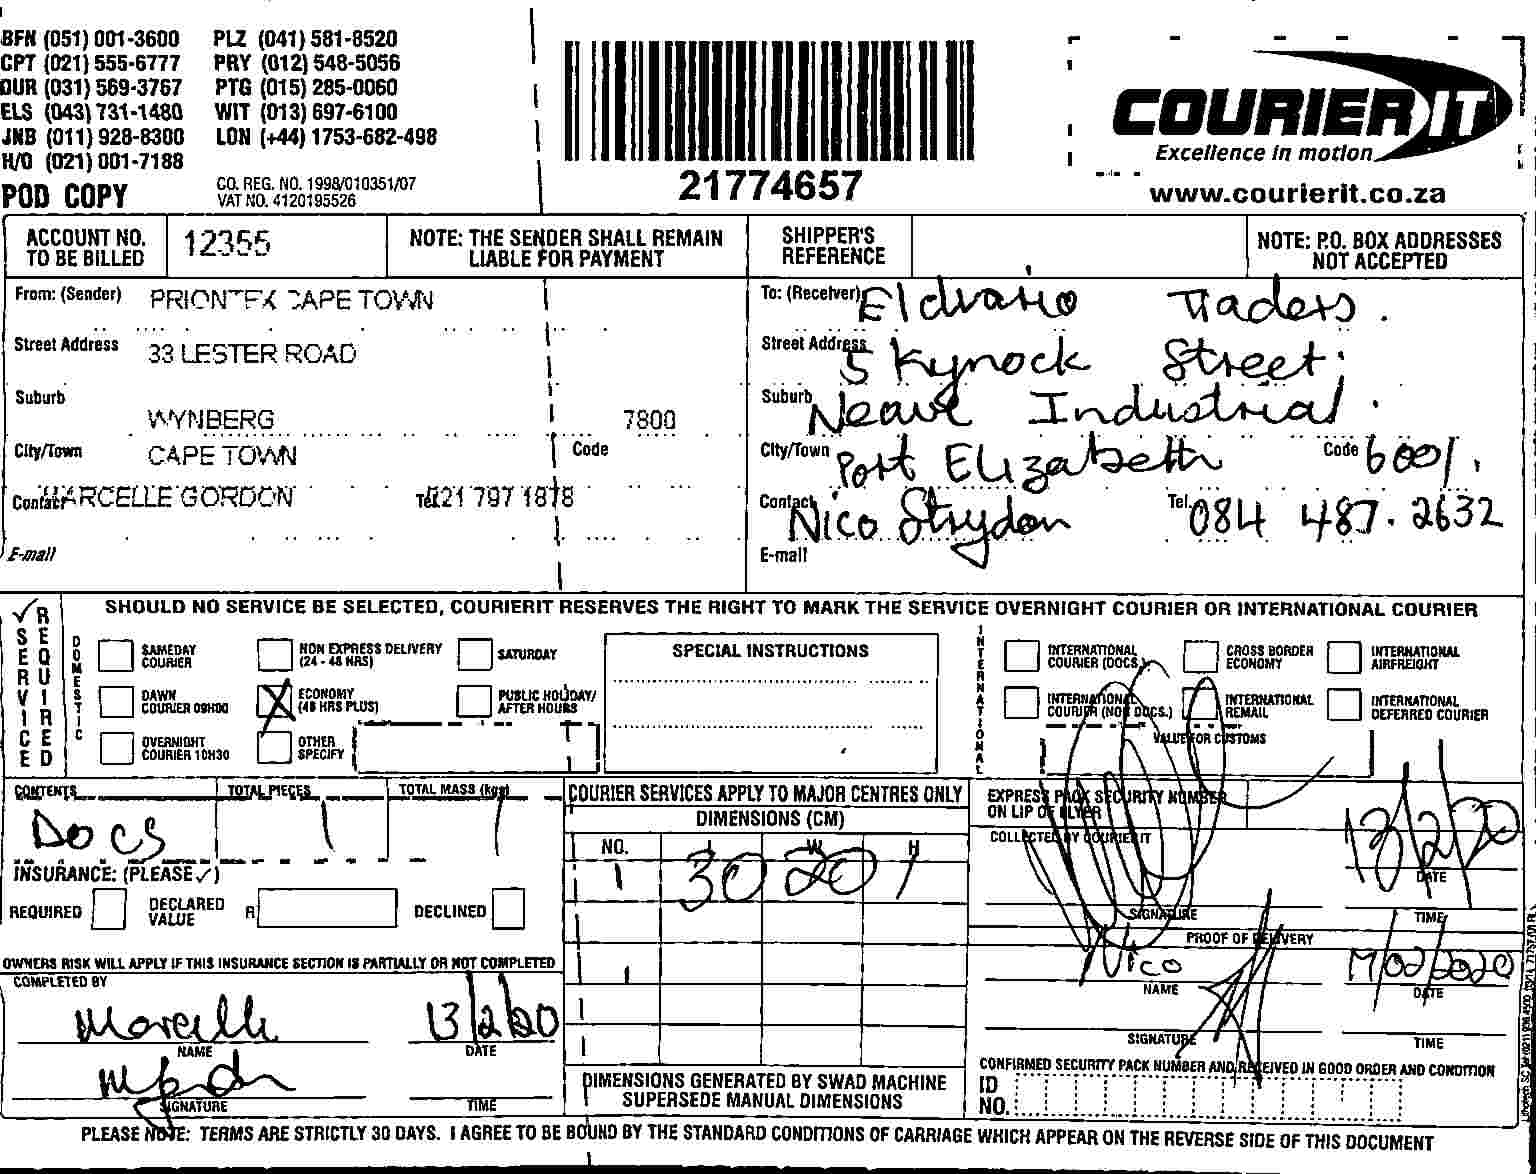 BFN (051) 001-3600 PLZ (041) 581-8520
CPT (021) 555-6777 PRY (012) 548-5056
DUR (031) 569-3767 PTG (015) 285-0060
ELS (043) 731-1480 WIT (013) 697-6100
JNB (011) 928-8300 LON (+44) 1753-682-498
H/O (021) 001-7188
POD COPY
CO. REG. NO. 1998/010351/07
VAT NO. 4120195526
21774657
COURIER IT
Excellence in motion
www.courierit.co.za
ACCOUNT NO. TO BE BILLED 12355
NOTE: THE SENDER SHALL REMAIN LIABLE FOR PAYMENT
SHIPPER'S REFERENCE
NOTE: P.O. BOX ADDRESSES NOT ACCEPTED
From: (Sender) PRIONTEX CAPE TOWN
Street Address 33 LESTER ROAD
Suburb WYNBERG 7800
City/Town CAPE TOWN Code
Contact MARCELLE GORDON Tel. 021 797 1878
E-mail
To: (Receiver) Traders.
Street Address 5 Kynock Street
Suburb Neave Industrial.
City/Town Port Elizabeth Code 6001.
Contact Nico Strydom Tel. 084 487. 2632
E-mail
✓ SERVICE REQUIRED
SHOULD NO SERVICE BE SELECTED, COURIERIT RESERVES THE RIGHT TO MARK THE SERVICE OVERNIGHT COURIER OR INTERNATIONAL COURIER
DOMESTIC
SAMEDAY COURIER
NON EXPRESS DELIVERY (24 - 48 HRS)
SATURDAY
DAWN COURIER 09H00
X ECONOMY (48 HRS PLUS)
PUBLIC HOLIDAY/ AFTER HOURS
OVERNIGHT COURIER 10H30
OTHER SPECIFY
SPECIAL INSTRUCTIONS
INTERNATIONAL
INTERNATIONAL COURIER (DOCS.)
CROSS BORDER ECONOMY
INTERNATIONAL AIRFREIGHT
INTERNATIONAL COURIER (NON DOCS.)
INTERNATIONAL REMAIL
INTERNATIONAL DEFERRED COURIER
VALUE FOR CUSTOMS
CONTENTS TOTAL PIECES TOTAL MASS (kgs)
DOCS 1 1
INSURANCE: (PLEASE ✓)
REQUIRED DECLARED VALUE R DECLINED
OWNERS RISK WILL APPLY IF THIS INSURANCE SECTION IS PARTIALLY OR NOT COMPLETED
COMPLETED BY
Marcelle 13/2/20
NAME DATE
SIGNATURE TIME
COURIER SERVICES APPLY TO MAJOR CENTRES ONLY
DIMENSIONS (CM)
NO. L W H
1 30 20 1
DIMENSIONS GENERATED BY SWAD MACHINE SUPERSEDE MANUAL DIMENSIONS
EXPRESS PACK SECURITY NUMBER ON LIP OF FLYER
COLLECTED BY COURIERIT
13/2/20
DATE
SIGNATURE TIME
PROOF OF DELIVERY
Nico /02/2020
NAME DATE
SIGNATURE TIME
CONFIRMED SECURITY PACK NUMBER AND RECEIVED IN GOOD ORDER AND CONDITION
ID NO.
PLEASE NOTE: TERMS ARE STRICTLY 30 DAYS. I AGREE TO BE BOUND BY THE STANDARD CONDITIONS OF CARRIAGE WHICH APPEAR ON THE REVERSE SIDE OF THIS DOCUMENT